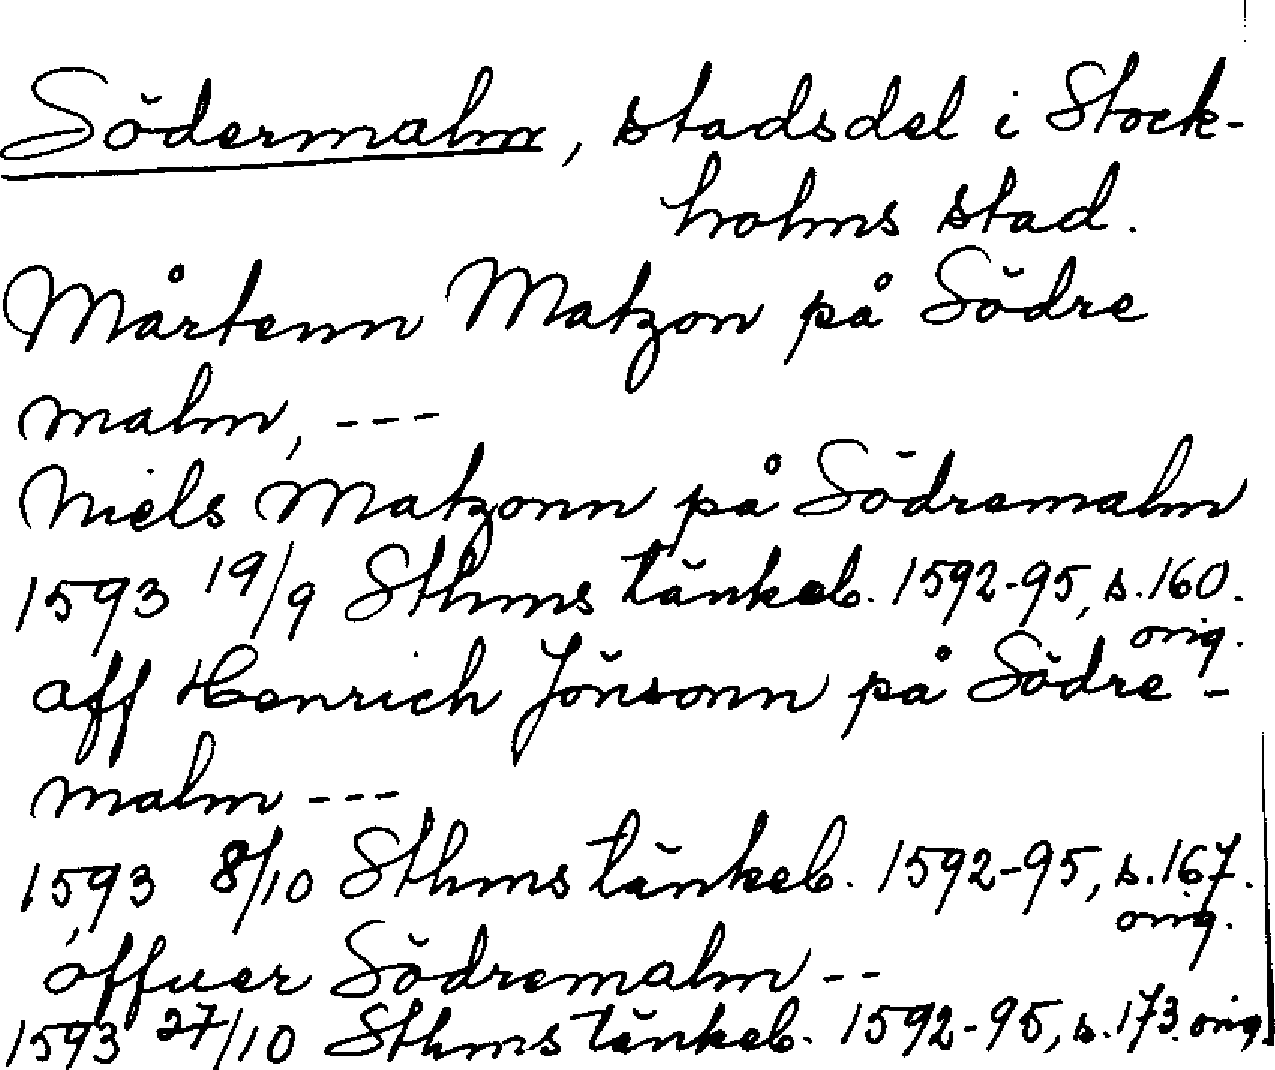 Södermalm, stadsdel i Stock-
holms stad.
Mårtenn Matzon på Södre
malm, ---
Niels Matzonn på Södremalm
1593 19/9 Sthms tänkeb. 1592-95, s. 160.
orig.
aff Henrich Jönsonn på Södre-
malm ---
1593 8/10 Sthms tänkeb. 1592-95, s. 167.
orig.
öffuer Södremalm --
1593 27/10 Sthms tänkeb. 1592-95, s. 173. orig.